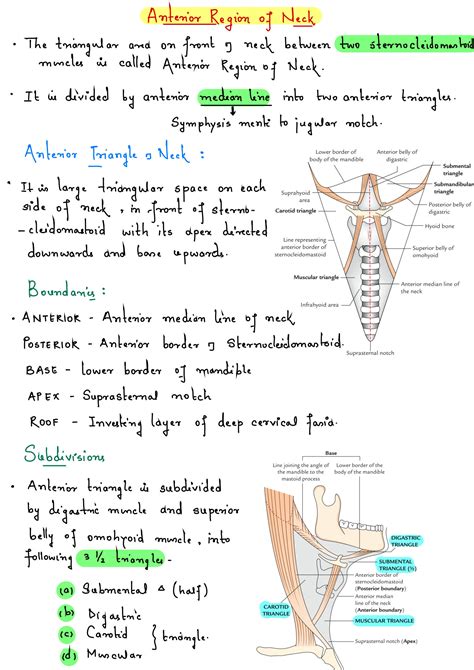 Anterior Region of Neck
• The triangular area on front of neck between two sternocleidomastoid
muscles is called Anterior Region of Neck.
• It is divided by anterior median line into two anterior triangles.
Symphysis menti to jugular notch.
Anterior Triangle of Neck :
• It is large triangular space on each
side of neck, in front of sterno-
-cleidomastoid with its apex directed
downwards and base upwards.
Lower border of
body of the mandible
Anterior belly of
digastric
Submental
triangle
Submandibular
triangle
Suprahyoid
area
Posterior belly of
digastric
Carotid triangle
Hyoid bone
Line representing
anterior border of
sternocleidomastoid
Superior belly of
omohyoid
Muscular triangle
Anterior median line of
the neck
Infrahyoid area
Suprasternal notch
Boundaries :
• ANTERIOR - Anterior median line of neck
POSTERIOR - Anterior border of Sternocleidomastoid.
BASE - lower border of mandible
APEX - Suprasternal notch
ROOF - Investing layer of deep cervical fascia.
Subdivisions
• Anterior triangle is subdivided
by digastric muscle and superior
belly of omohyoid muscle, into
following 3 1/2 triangles -
(a) Submental Δ (half)
(b) Digastric
(c) Carotid } triangle.
(d) Muscular
Base
Line joining the angle of
the mandible to the
mastoid process
Lower border of the
body of the mandible
DIGASTRIC
TRIANGLE
SUBMENTAL
TRIANGLE (½)
Anterior border of
sternocleidomastoid
(Posterior boundary)
Anterior median
line of the neck
(Anterior boundary)
CAROTID
TRIANGLE
MUSCULAR TRIANGLE
Suprasternal notch (Apex)